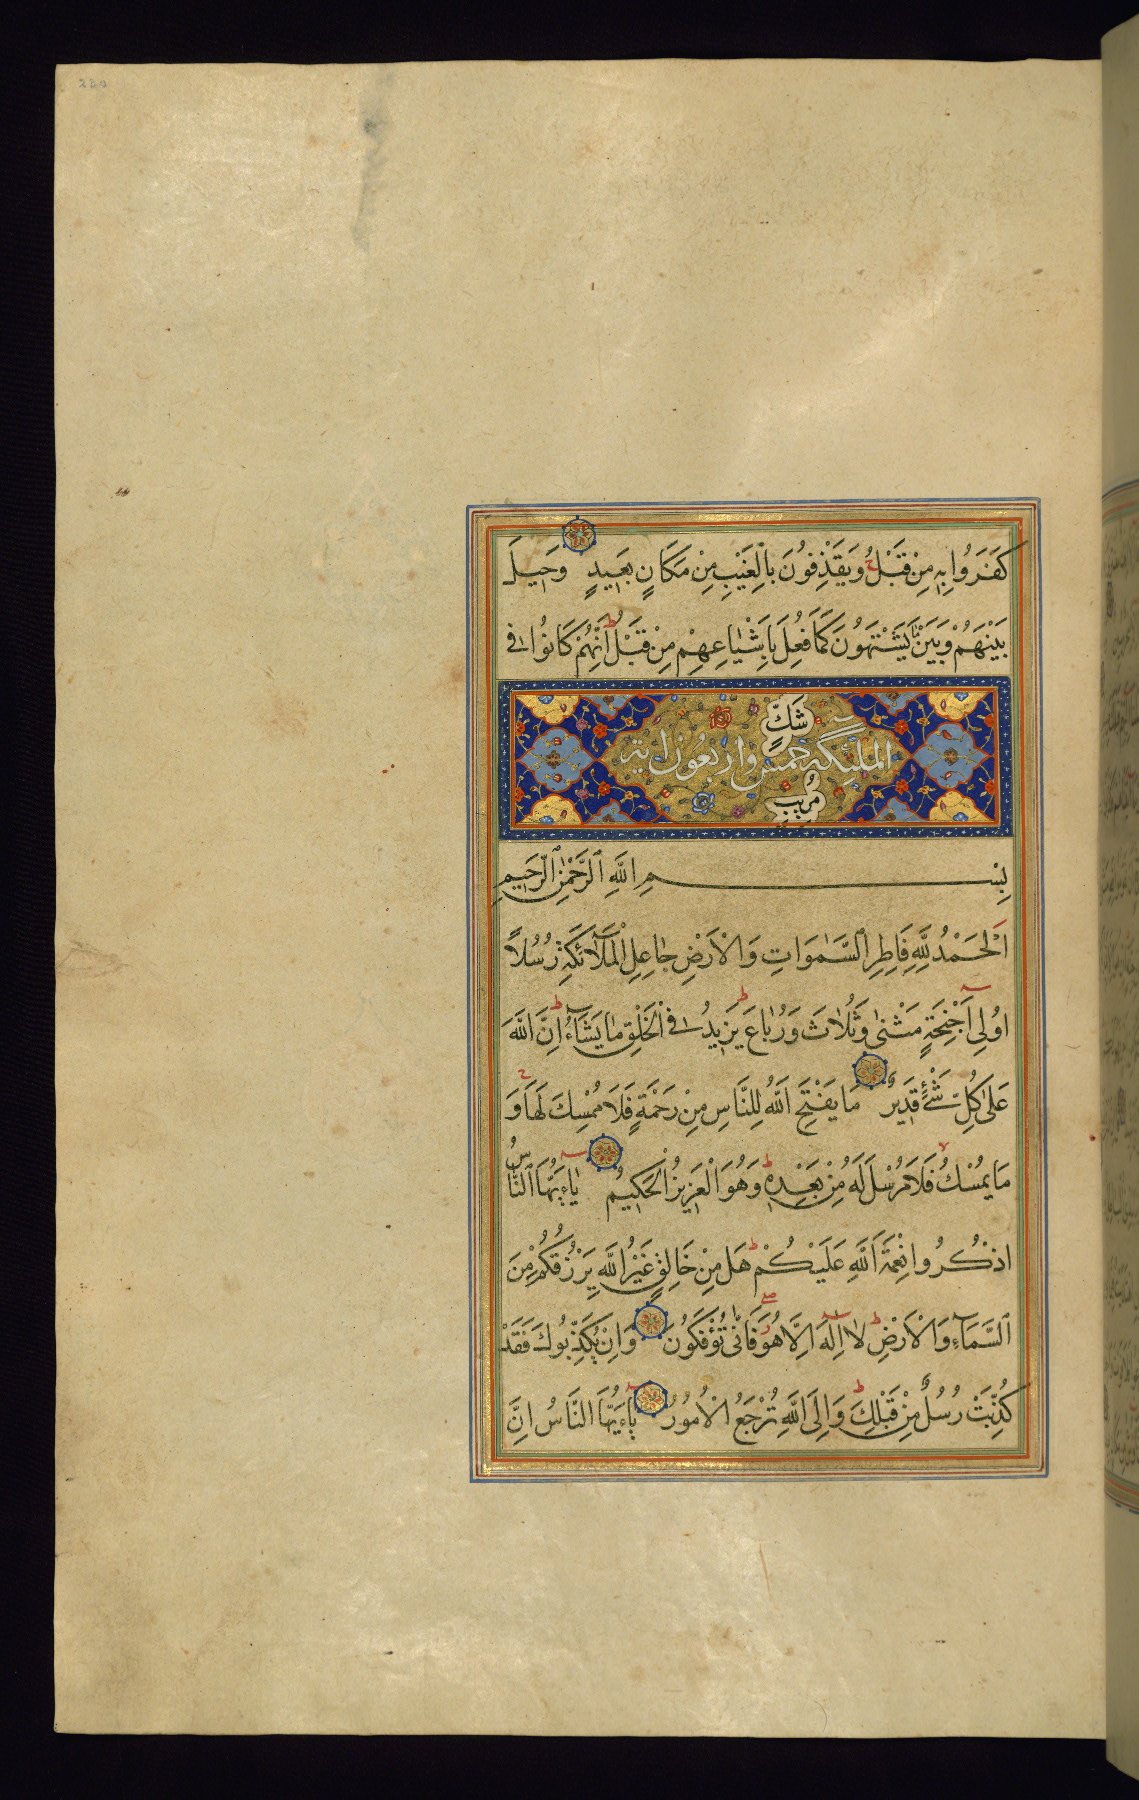 كَفَرُوا بِهِ مِنْ قَبْلُ وَيَقْذِفُونَ بِالْغَيْبِ مِنْ مَكَانٍ بَعِيدٍ وَحِيلَ
بَيْنَهُمْ وَبَيْنَ مَا يَشْتَهُونَ كَمَا فُعِلَ بِأَشْيَاعِهِمْ مِنْ قَبْلُ إِنَّهُمْ كَانُوا فِى
شَكٍّ
الملئكة خمس واربعون اية
مُرِيبٍ
بِسْمِ اللَّهِ الرَّحْمٰنِ الرَّحِيمِ
اَلْحَمْدُ لِلَّهِ فَاطِرِ السَّمٰوَاتِ وَالْاَرْضِ جَاعِلِ الْمَلَآئِكَةِ رُسُلاً
اُولِى اَجْنِحَةٍ مَثْنٰى وَثُلَاثَ وَرُبَاعَ يَزِيدُ فِى الْخَلْقِ مَا يَشَآءُ اِنَّ اللَّهَ
عَلٰى كُلِّ شَىْءٍ قَدِيرٌ مَا يَفْتَحِ اللَّهُ لِلنَّاسِ مِنْ رَحْمَةٍ فَلَا مُمْسِكَ لَهَا وَ
مَا يُمْسِكُ فَلَا مُرْسِلَ لَهُ مِنْ بَعْدِهِ وَهُوَ الْعَزِيزُ الْحَكِيمُ يَاءَيُّهَا النَّاسُ
اذْكُرُوا نِعْمَةَ اللَّهِ عَلَيْكُمْ هَلْ مِنْ خَالِقٍ غَيْرُ اللَّهِ يَرْزُقُكُمْ مِنَ
السَّمَآءِ وَالْاَرْضِ لَا اِلٰهَ اِلَّا هُوَ فَاَنّٰى تُؤْفَكُونَ وَاِنْ يُكَذِّبُوكَ فَقَدْ
كُذِّبَتْ رُسُلٌ مِنْ قَبْلِكَ وَاِلَى اللَّهِ تُرْجَعُ الْاُمُورُ يَاءَيُّهَا النَّاسُ اِنَّ